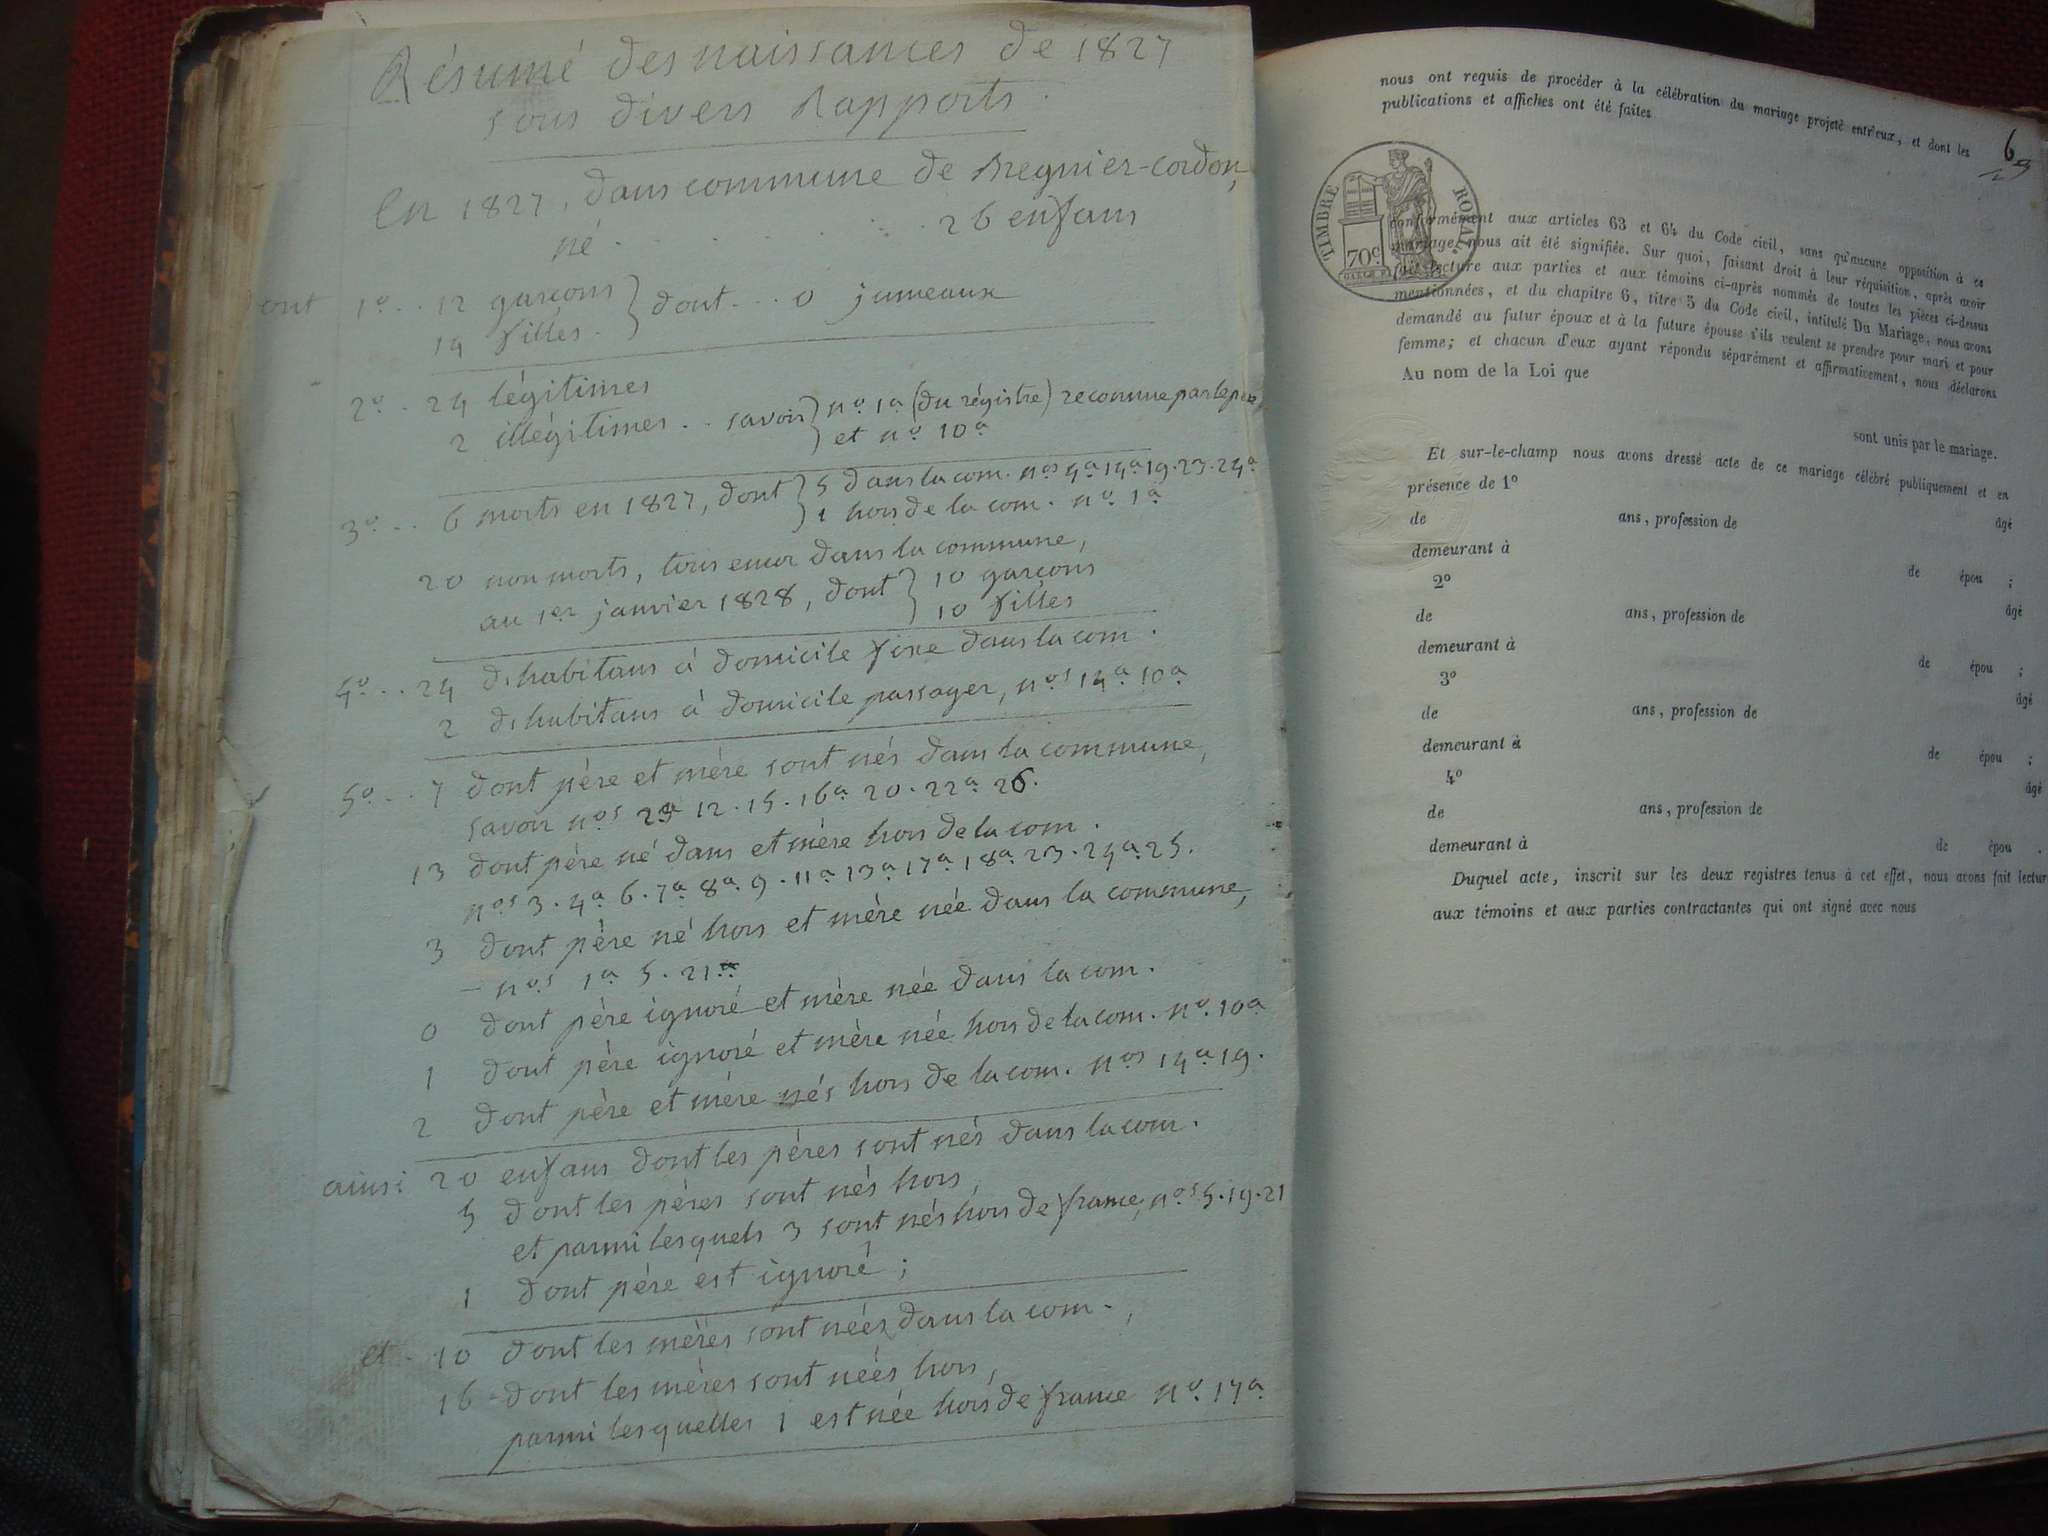 Résumé des naissances de 1827
sous divers Rapports.
En 1827, dans commune de Bregnier-cordon,
né . . . . . . 26 enfans
dont 1º . . 12 garçons } dont . . . 0 jumeaux
14 filles .
2º . 24 légitimes
2 illégitimes . . savoir } nº 1ª (du régistre) reconnue par le père,
et nº 10ª
3º . . 6 morts en 1827, dont } 5 dans la com. nos 4ª 14ª 19 . 23 . 24ª
1 hors de la com. nº 1ª
20 non morts, tous encor dans la commune,
au 1er janvier 1828, dont } 10 garçons
10 filles
4º . . 24 d'habitans à domicile fixe dans la com.
2 d'habitans à domicile passager, nos 14ª 10ª
5º . . 7 dont père et mère sont nés dans la commune,
savoir nos 2ª 12 . 15 . 16ª 20 . 22ª 26.
13 dont père né dans et mère hors de la com.
nos 3 . 4ª 6 . 7ª 8ª 9 . 11ª 13ª 17ª 18ª 23 . 24ª 25.
3 dont père né hors et mère née dans la commune,
– nos 1ª 5 . 21
0 dont père ignoré et mère née dans la com.
1 dont père ignoré et mère née hors de la com. nº 10ª
2 dont père et mère nés hors de la com. nos 14ª 19.
ainsi 20 enfans dont les pères sont nés dans la com.
5 dont les pères sont nés hors,
et parmi lesquels 3 sont nés hors de france, nos 5 . 19 . 21
1 dont père est ignoré ;
et . 10 dont les mères sont nées dans la com.,
16 dont les mères sont nées hors,
parmi lesquelles 1 est née hors de france nº 17ª
nous ont requis de procéder à la célébration du mariage projeté entr'eux, et dont les
publications et affiches ont été faites
TIMBRE ROYAL.
70c
conformément aux articles 63 et 64 du Code civil, sans qu'aucune opposition à ce
mariage nous ait été signifiée. Sur quoi, faisant droit à leur réquisition, après avoir
fait lecture aux parties et aux témoins ci-après nommés de toutes les pièces ci-dessus
mentionnées, et du chapitre 6, titre 5 du Code civil, intitulé Du Mariage, nous avons
demandé au futur époux et à la future épouse s'ils veulent se prendre pour mari et pour
femme; et chacun d'eux ayant répondu séparément et affirmativement, nous déclarons
Au nom de la Loi que
sont unis par le mariage.
Et sur-le-champ nous avons dressé acte de ce mariage célébré publiquement et en
présence de 1º
âgé
de ans, profession de
demeurant à
de épou ;
2º
âgé
de ans, profession de
demeurant à
de épou ;
3º
âgé
de ans, profession de
demeurant à
de épou ;
4º
âgé
de ans, profession de
demeurant à
de épou .
Duquel acte, inscrit sur les deux registres tenus à cet effet, nous avons fait lectur
aux témoins et aux parties contractantes qui ont signé avec nous